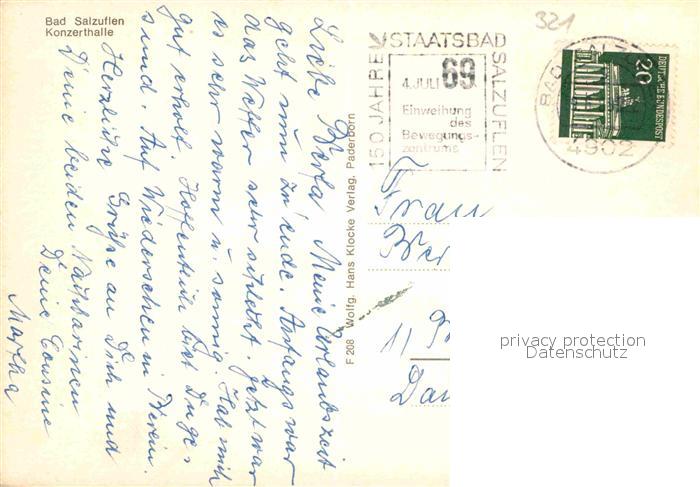 Bad Salzuflen
Konzerthalle
Liebe Berta Meine Urlaubszeit
geht nun zu ende. Anfangs war
das Wetter sehr schlecht. Jetzt war
es sehr warm u. sonnig. Hab mich
gut erholt. Hoffentlich bist Du ge,
sund. Auf Wiedersehen im Verein.
Herzliche Grüße an Dich und
Deine beiden Nachbarinen
Deine Cousine
Martha
F 208 Wolfg. Hans Klocke Verlag, Paderborn
321
150 JAHRE STAATSBAD SALZUFLEN
4. JULI 69
Einweihung
des
Bewegungs-
zentrums
4902
20
DEUTSCHE BUNDESPOST
Frau
Ber
11
Dan
privacy protection
Datenschutz